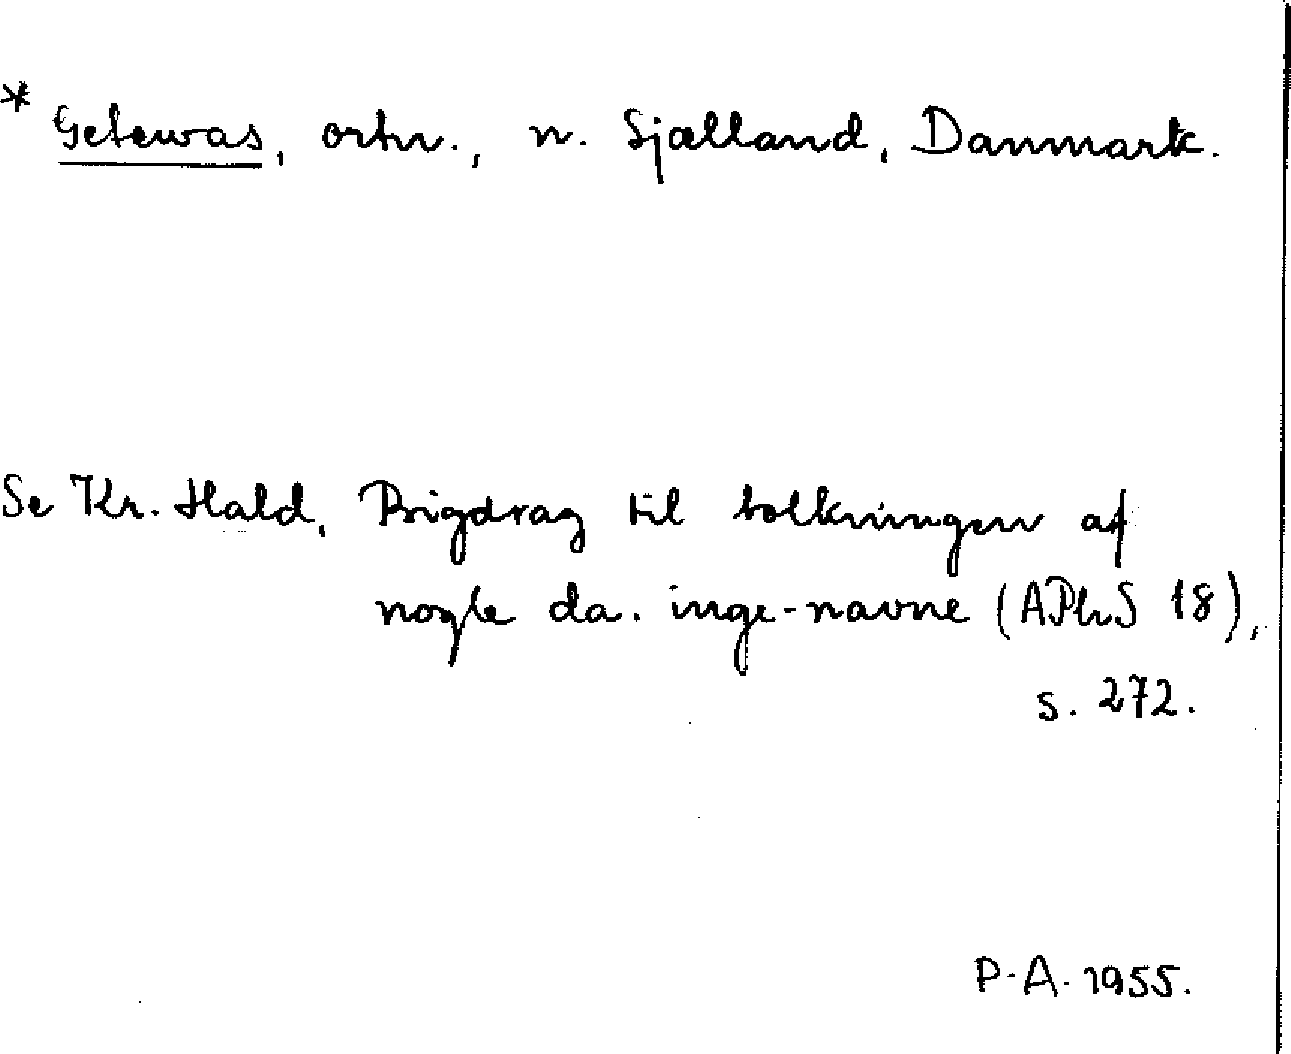 * Getewas, ortn., n. Sjælland, Danmark.
Se Kr. Hald, Bigdrag til tolkningen af
nogle da. inge-navne (APhS 18),
s. 272.
P.A. 1955.